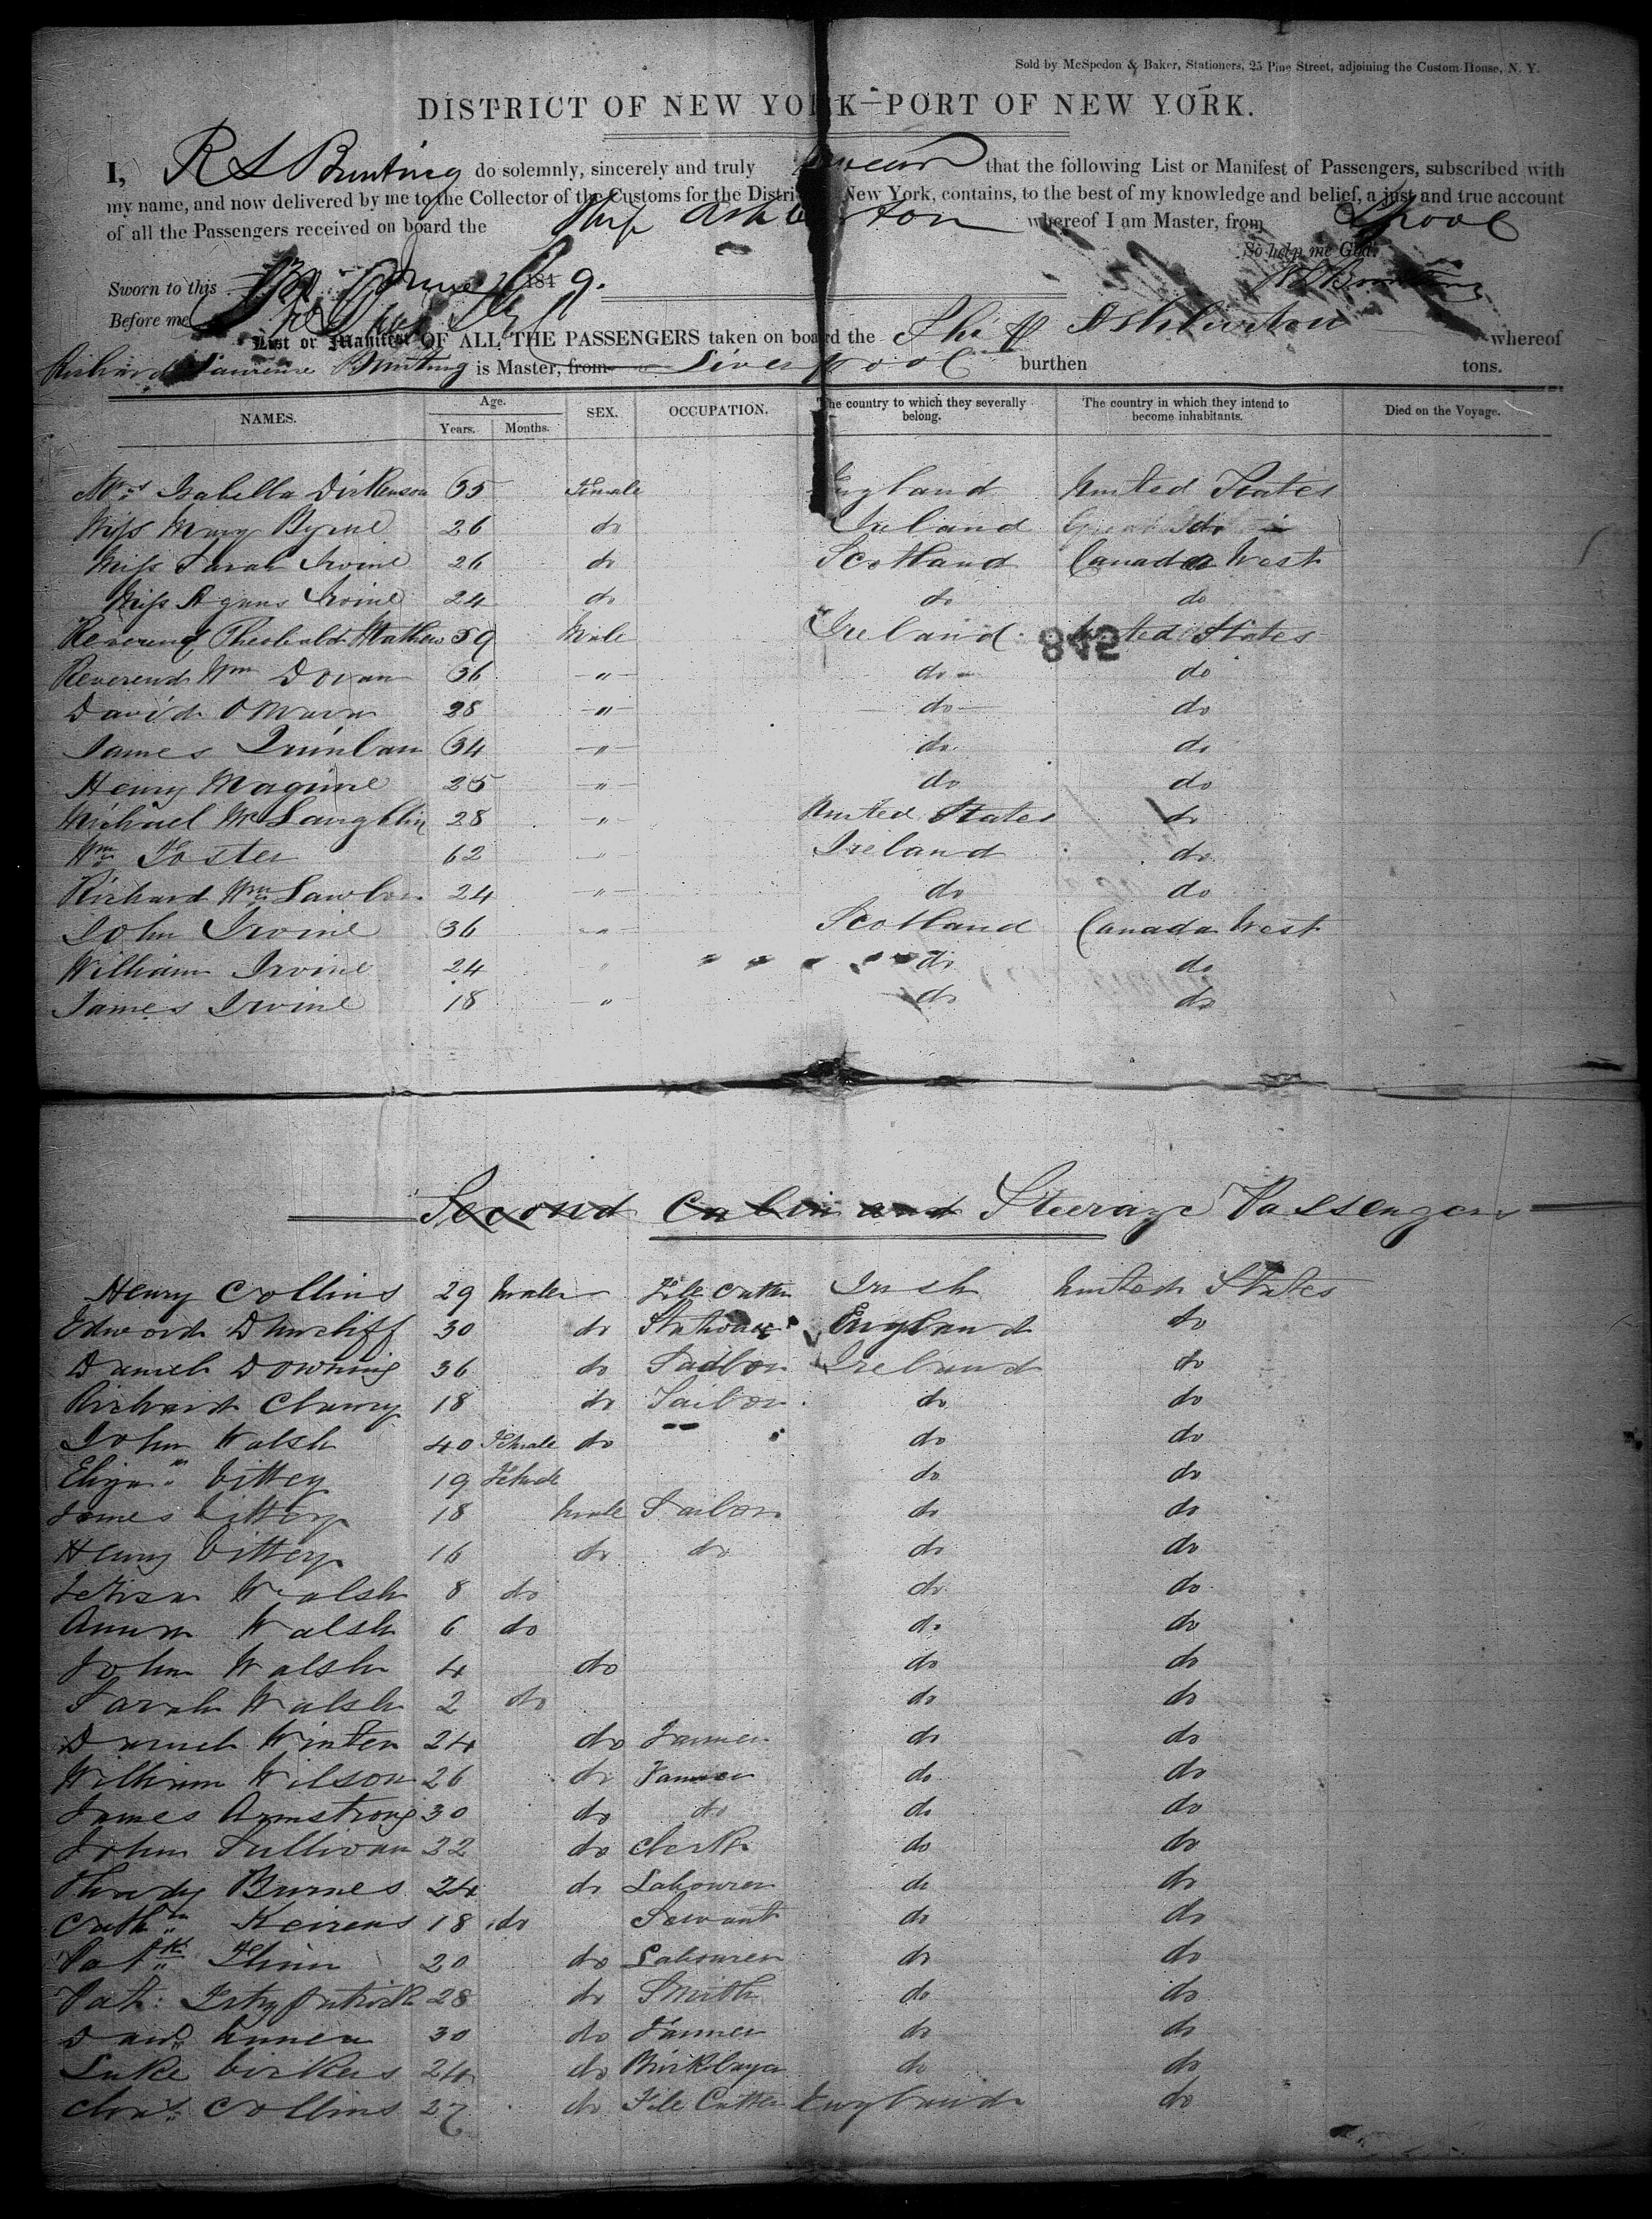 Sold by McSpedon & Baker, Stationers, 25 Pine Street, adjoining the Custom-House, N. Y.
DISTRICT OF NEW YORK—PORT OF NEW YORK.
I, R S Bunting do solemnly, sincerely and truly swear that the following List or Manifest of Passengers, subscribed with
my name, and now delivered by me to the Collector of the Customs for the District New York, contains, to the best of my knowledge and belief, a just and true account
of all the Passengers received on board the Ship Ashburton whereof I am Master, from Lpool
So help me God.
Sworn to this June 1849.
Before me
List or Manifest OF ALL THE PASSENGERS taken on board the Ship Ashburton whereof
Richard Bunting is Master, from Liverpool burthen tons.
NAMES. Age. Years. Months. SEX. OCCUPATION. The country to which they severally belong. The country in which they intend to become inhabitants. Died on the Voyage.
Mrs Isabella Dickenson 35 Female England United States
Miss Mary Byrne 26 do Ireland do
Miss Sarah Irvine 26 do Scotland Canada West
Miss Agnes Irvine 24 do do do
Reverend Theobald Mathew 59 Male Ireland United States
842
Reverend Wm Doran 36 " do do
David OMeara 28 " do do
James Quinlan 34 " do do
Henry Maguire 25 " do do
Michael McLaughlin 28 " United States do
Wm Foster 62 " Ireland do
Richard Wm Lawlor 24 " do do
John Irvine 36 " Scotland Canada West
William Irvine 24 " do do
James Irvine 18 " do do
Second Cabin and Steerage Passengers
Henry Collins 29 Male File Cutter Irish United States
Edward Duncliff 30 do Stationer England do
Daniel Downing 36 do Ireland do
Richard 18 do Tailor do do
John Walsh 40 Female do do do
Eliza Vittey 19 Female do do
James Vittey 18 Male do do
Henry Vittey 16 do do do do
Walsh 8 do do do
Walsh 6 do do do
John Walsh 4 do do do
Sarah Walsh 2 do do do
Daniel Winter 24 do Farmer do do
William Wilson 26 do Farmer do do
James Armstrong 30 do do do do
John Sullivan 22 do Clerk do do
Thady Burnes 24 do Labourer do do
Cathn Keirens 18 do Servant do do
Patk 20 do Labourer do do
Pat: Fitzpatrick 28 do Smith do do
30 do Farmer do do
Luke 24 do Bricklayer do do
Chas Collins 27 do File Cutter England do